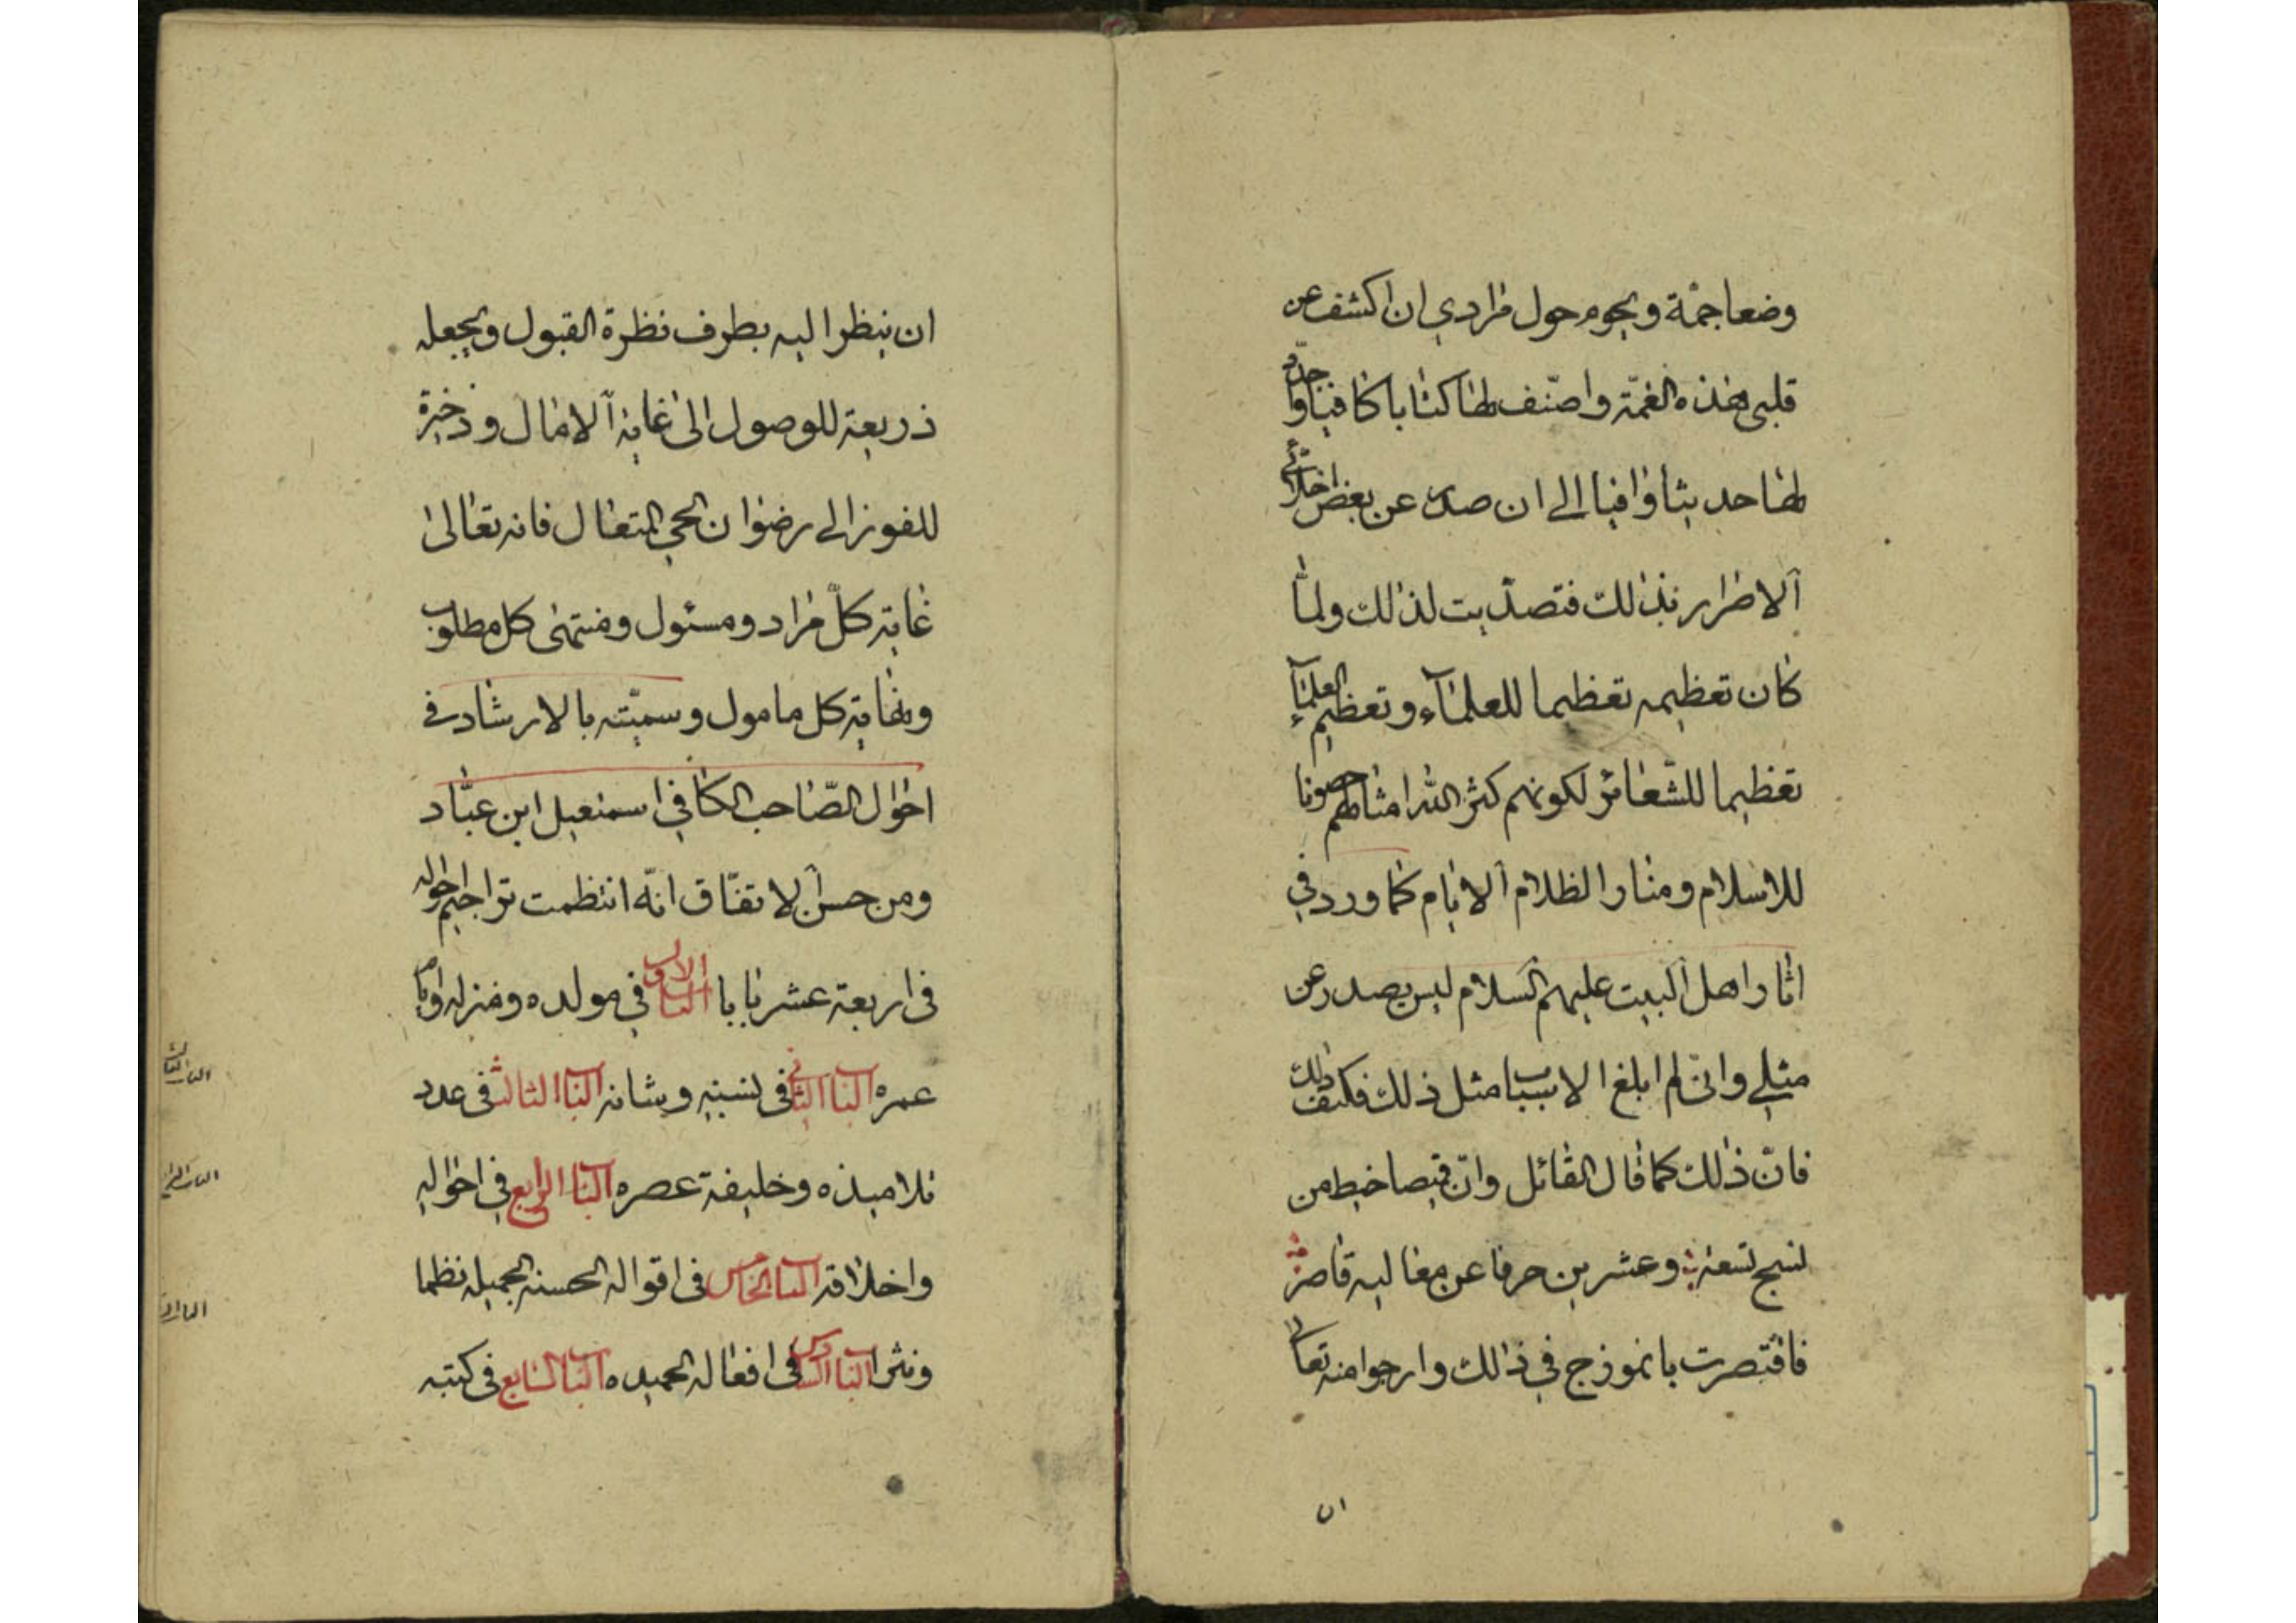 وضعا جمة ويحوم حول مرادي ان اكشف عن
قلبى هذه الغمّة واصنّف لها كتابا كافيا واجدّد
لها حديثا وافيا الى ان صدر عن بعض اخلائى
الاضرار بذلك فتصدّيت لذلك ولمّا
كان تعظيمه تعظيما للعلماء وتعظيم العلماء
تعظيما للشّعائر لكونهم كثر الله امثالهم حصونا
للاسلام ومنارا لظلام الايام كما ورد في
اثار اهل البيت عليهم السلام ليس يصدر عن
مثلي وانى لم ابلغ الاسباب مثل ذلك فكيف ذلك
فانّ ذلك كما قال القائل وانّ قميصا خيط من
نسج تسعة وعشرين حرفا عن معاليه قاصر
فاقتصرت بانموذج في ذلك وارجوا منه تعالى
ان
ان ينظر اليه بطرف نظرة القبول ويجعله
ذريعة للوصول الى غاية الامال وذخيرة
للفوز الى رضوان الحي المتعال فانه تعالى
غاية كلّ مراد ومسئول ومنتهى كل مطلوب
ونهاية كل مامول وسميّته بالارشاد في
احوال الصّاحب الكافي اسمعيل ابن عبّاد
ومن حسن الاتفاق انّه انتظمت تراجم احواله
فى اربعة عشر بابا الباب الاول في مولده ومنزله وايام
عمره الباب الثاني فى نسبه وشانه الباب الثالث فى عدد
تلاميذه وخليفة عصره الباب الرابع في احواله
واخلاقه الباب الخامس فى اقواله الحسنه الجميله نظما
ونثرا الباب السادس فى افعاله الحميده الباب السابع فى كتبه
الباب الثالث
الباب الرابع